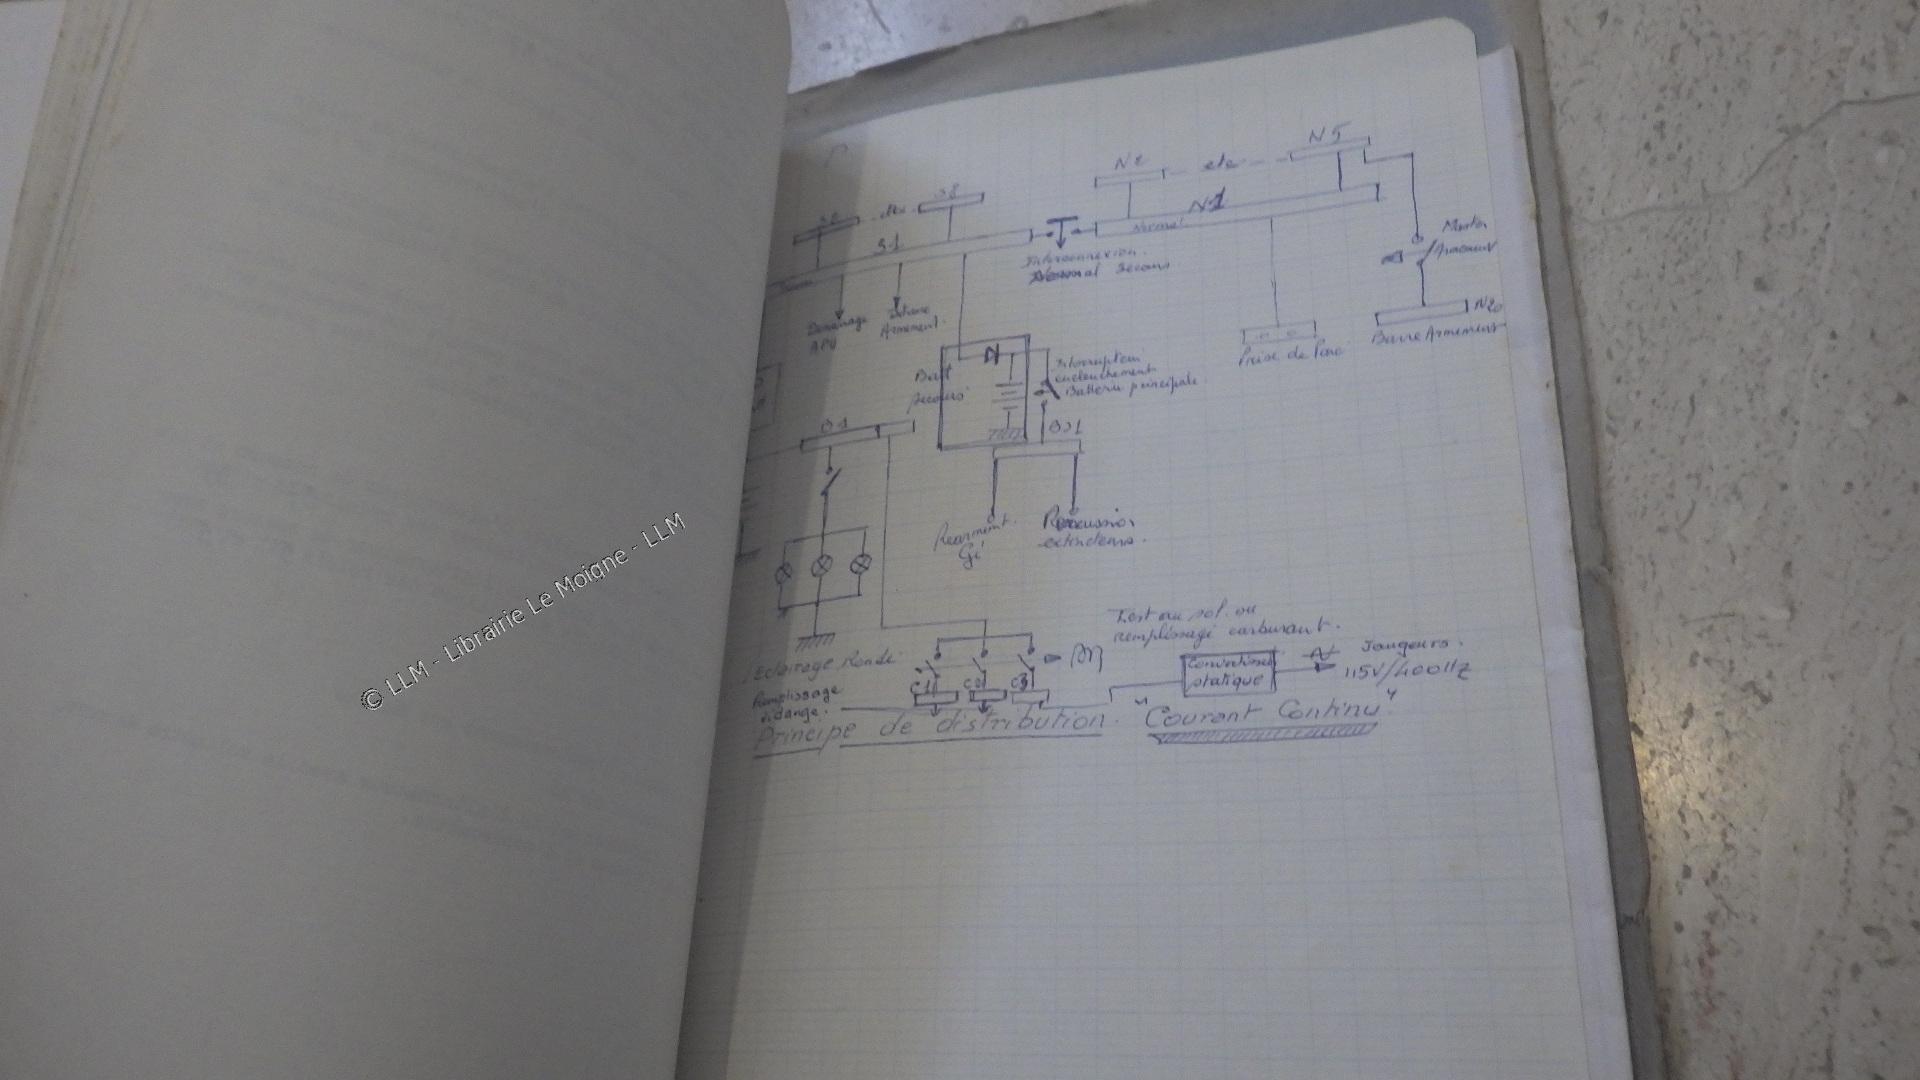 N2 --- etc --- N5
S8
S1
N1
Normal
Interconnexion
Normal Secours
Master
Armement
Démarrage
APU
Armement.
N20
Barre Armement
Prise de Parc
Batt
Secours
Interrupteur
enclenchement
Batterie principale.
B1
Rearmement.
Gé
Percussion
extincteurs.
Eclairage Ronde.
Test au sol ou
remplissage carburant.
Convertisseur
statique
Jaugeurs.
115V/400Hz
Remplissage
vidange.
C1
C2
C3
Principe de distribution. "Courant Continu"
© LLM - Librairie Le Moigne - LLM